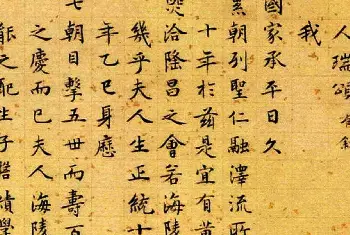 人瑞頌
我
國家承平日久
累朝列聖仁融澤流
十年於兹是宜有黄
熙洽隆昌之會若海陵
幾乎夫人生正統十
年乙巳身歷
七朝目擊五世而壽百
之慶而已夫人海陵
配生子